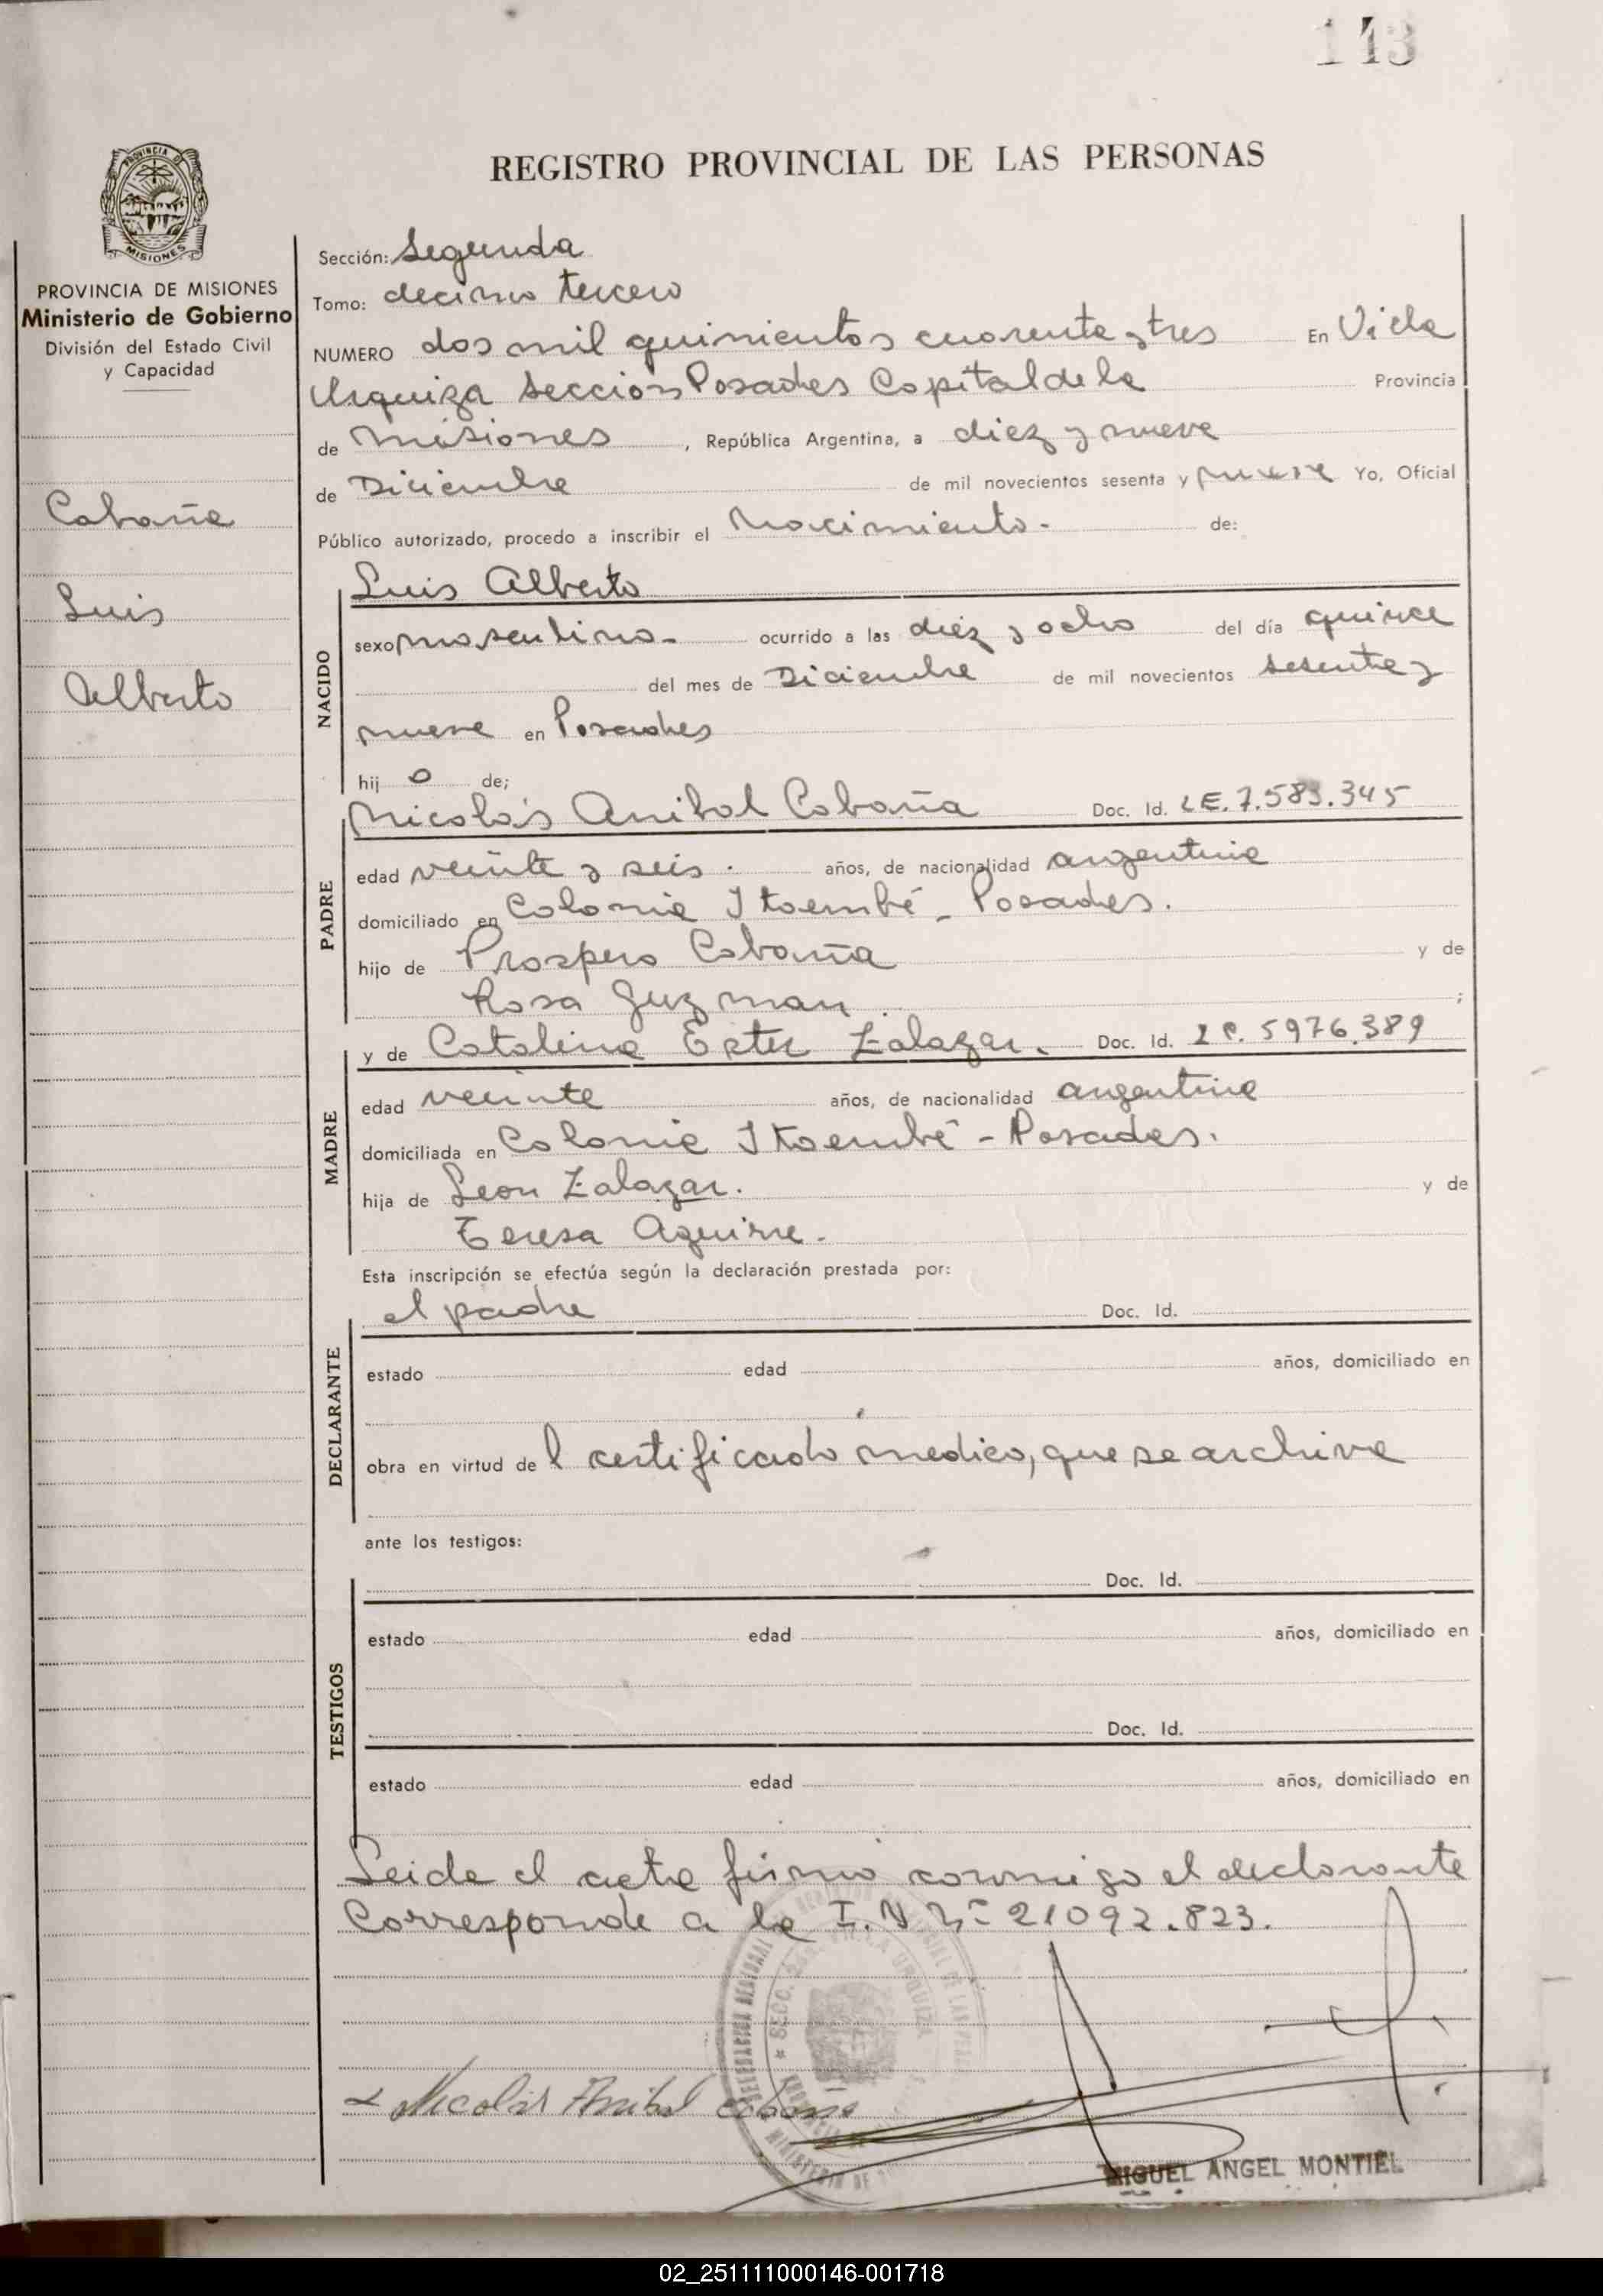 143
REGISTRO PROVINCIAL DE LAS PERSONAS
PROVINCIA DE MISIONES
PROVINCIA DE MISIONES
Ministerio de Gobierno
División del Estado Civil
y Capacidad
Cabaña
Luis
Alberto
Sección: Segunda
Tomo: decimo tercero
NUMERO dos mil quinientos cuarenta y tres En Villa
Urquiza Sección Posadas Capital de la Provincia
de Misiones, República Argentina, a diez y nueve
de Diciembre de mil novecientos sesenta y nueve Yo, Oficial
Público autorizado, procedo a inscribir el Nacimiento.- de:
NACIDO
Luis Alberto
sexo masculino.- ocurrido a las diez y ocho del día quince
del mes de Diciembre de mil novecientos sesenta y
nueve en Posadas
hij o de;
PADRE
Nicolás Anibal Cabaña Doc. Id. LE. 7.583.345
edad veinte y seis. años, de nacionalidad argentina
domiciliado en Colonia Itaembé - Posadas.
hijo de Prospero Cabaña y de
Rosa Guzman ;
MADRE
y de Catalina Ester Zalazar. Doc. Id. LC. 5976.389
edad veinte años, de nacionalidad argentina
domiciliada en Colonia Itaembé - Posadas.
hija de Leon Zalazar. y de
Teresa Aguirre.
Esta inscripción se efectúa según la declaración prestada por:
DECLARANTE
el padre Doc. Id.
estado edad años, domiciliado en
obra en virtud de l certificado medico, que se archiva
ante los testigos:
TESTIGOS
Doc. Id.
estado edad años, domiciliado en
Doc. Id.
estado edad años, domiciliado en
Leida el acta firmó conmigo el declarante
Corresponde a la I.N Nº 21092.823.
SECC. 2da. VILLA URQUIZA
Nicolás Anibal Cabaña
MIGUEL ANGEL MONTIEL
02_251111000146-001718